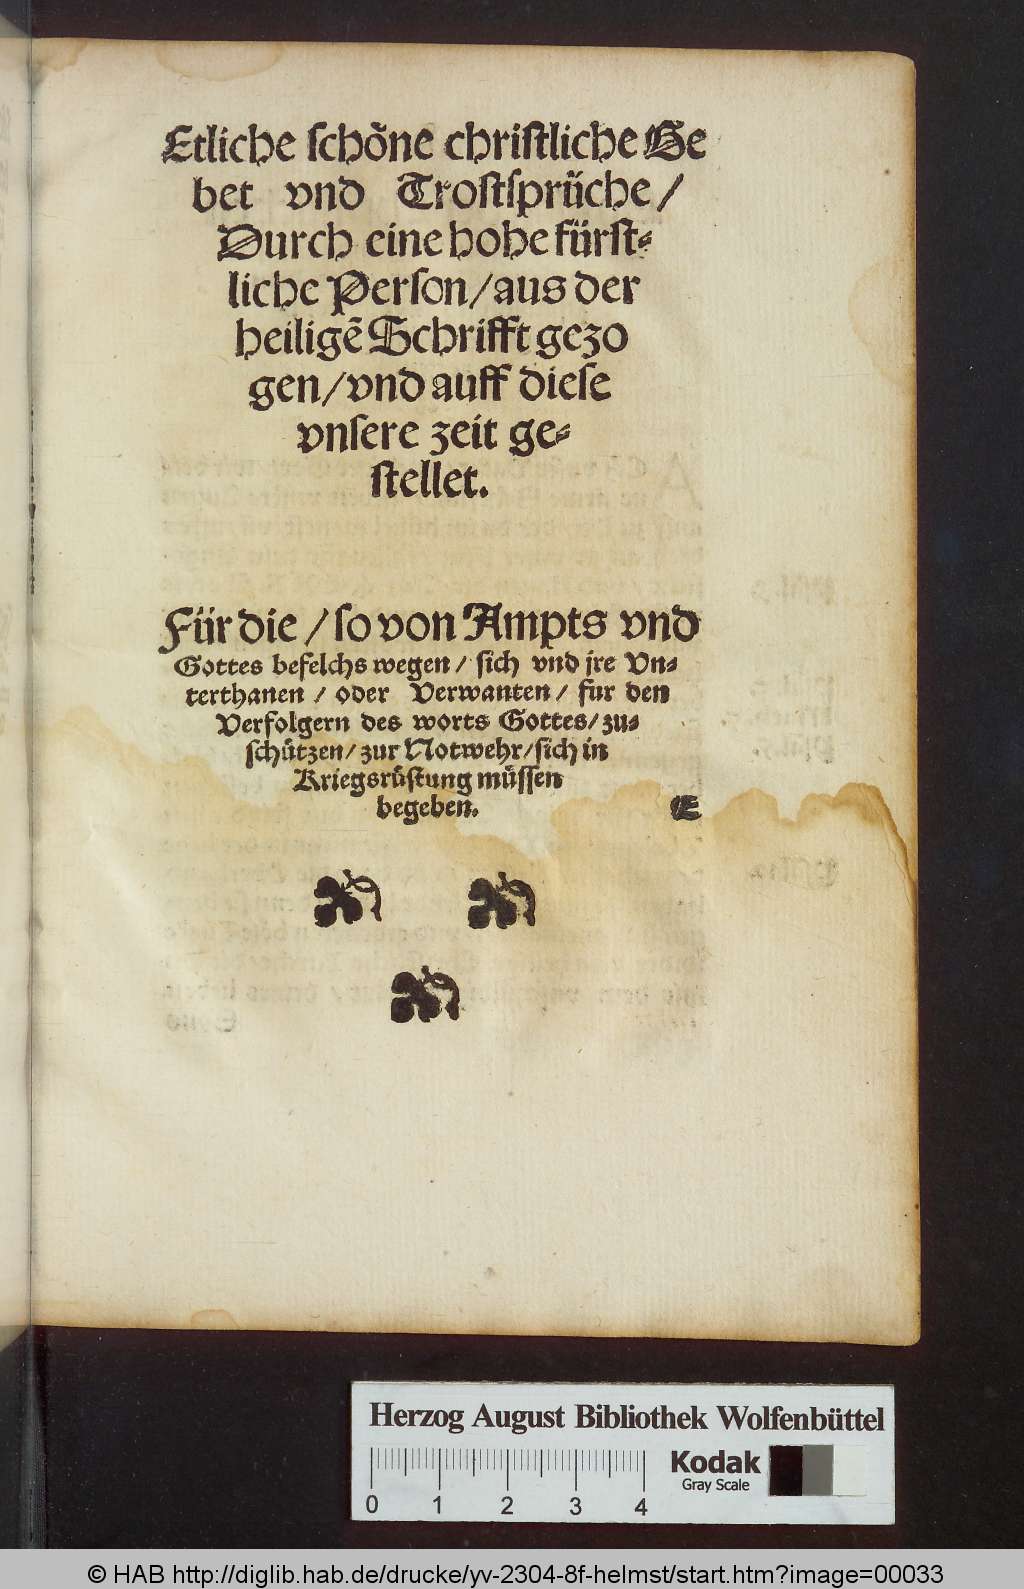 Etliche schöne christliche Ge
bet vnd Trostsprüche /
Durch eine hohe fürst⸗
liche Person / aus der
heiligẽ Schrifft gezo
gen / vnd auff diese
vnsere zeit ge⸗
stellet.
Für die / so von Ampts vnd
Gottes befelchs wegen / sich vnd jre Vn⸗
terthanen / oder Verwanten / fur den
Verfolgern des worts Gottes / zu⸗
schützen / zur Notwehr / sich in
Kriegsrüstung müssen
begeben.
E
Herzog August Bibliothek Wolfenbüttel
Kodak
Gray Scale
0 1 2 3 4
© HAB http://diglib.hab.de/drucke/yv-2304-8f-helmst/start.htm?image=00033